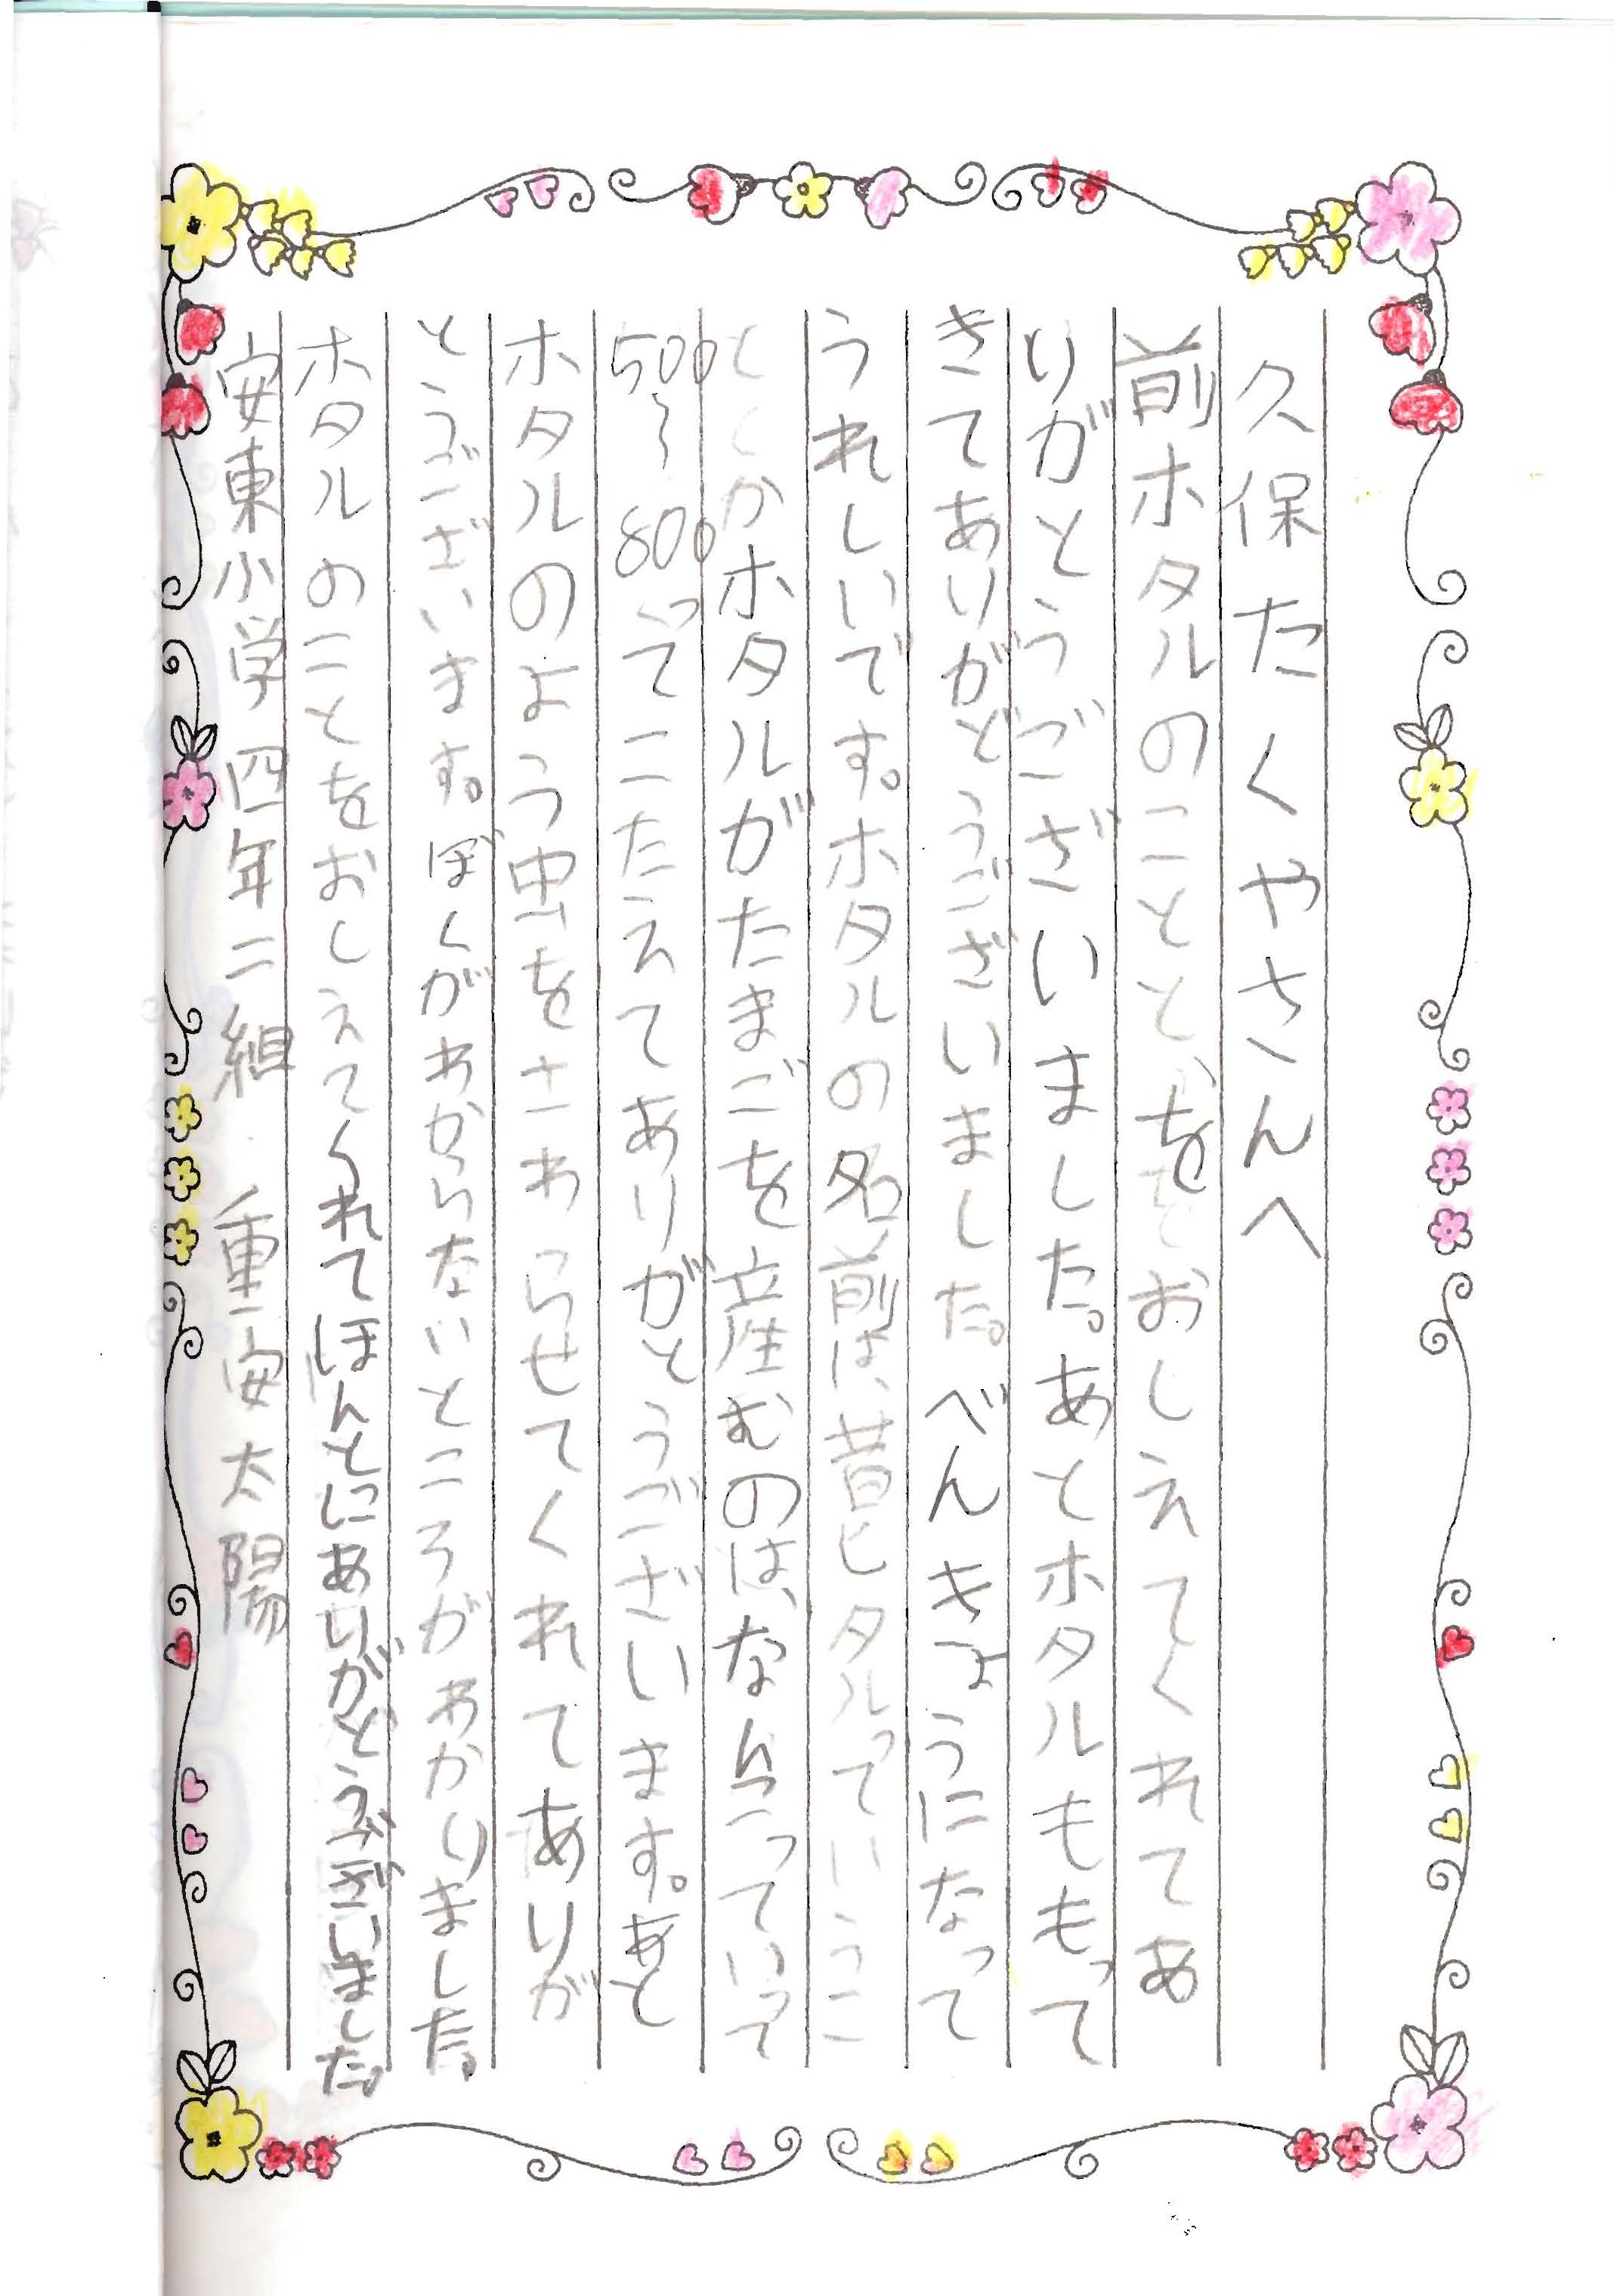 久保たくやさんへ
前ホタルのこととををおしえてくれてあ
りがとうございました。あとホタルももって
きてありがとうございました。べんきょうになって
うれしいです。ホタルの名前は、昔ヒタルっていうこ
ととかホタルがたまごを産むのは、なんこっていって
500〜800ってこたえてありがとうございます。あと
ホタルのよう虫をさわらせてくれてありが
とうございます。ぼくがわからないところがわかりました。
ホタルのことをおしえてくれてほんとにありがとうございました。
安東小学四年二組 重安太陽